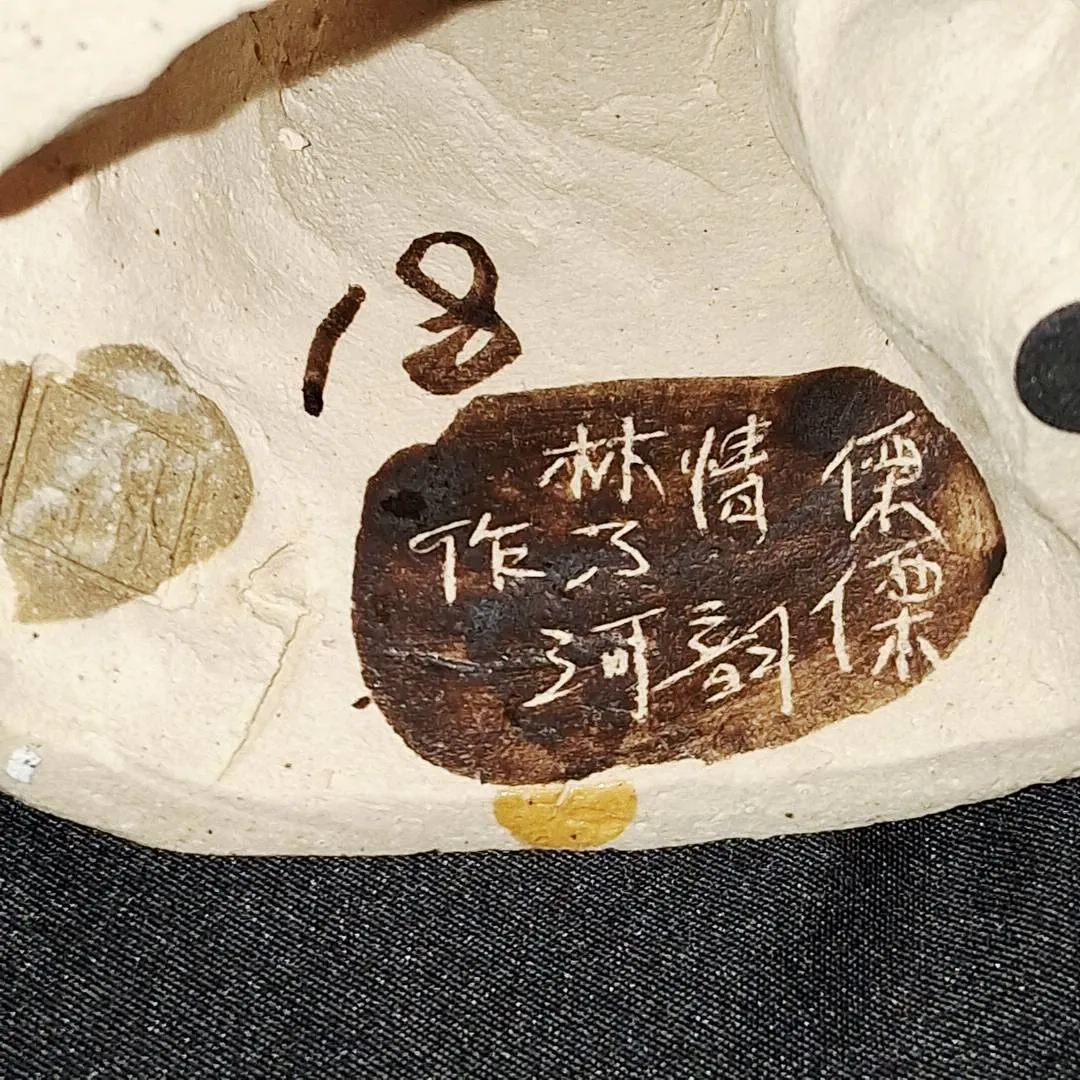 18
傈僳
情韵
林乃河
作